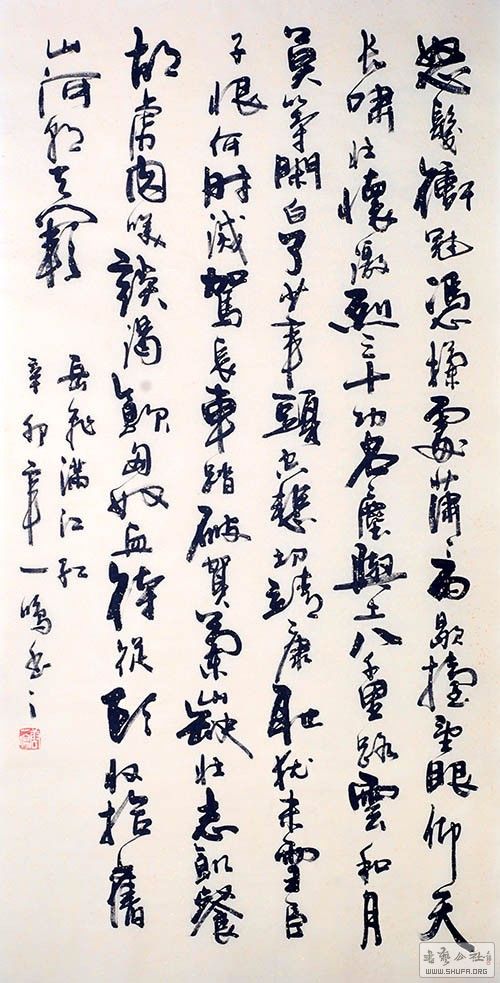 怒髮衝冠憑欄處蕭〻雨歇擡望眼仰天
長嘯壯懷激烈三十功名塵與土八千里路雲和月
莫等閑白了少年頭空悲切靖康耻犹未雪臣
子恨何時滅駕長車踏破賀蘭山缺壯志飢餐
胡虜肉笑談渴飲匈奴血待從頭收拾舊
山河朝天闕
岳飛滿江紅
辛卯年一鳴書
书艺公社
WWW.SHUFA.ORG